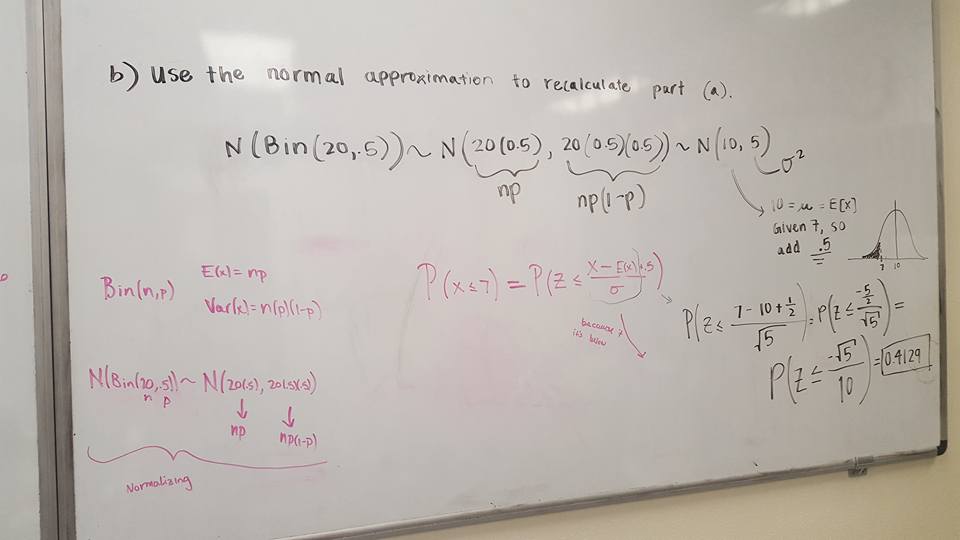 b) Use the normal approximation to recalculate part (a).
N(Bin(20,.5)) ~ N(20(0.5), 20(0.5)(0.5)) ~ N(10, 5)
σ²
np
np(1-p)
10 = µ = E[X]
Given 7, so
add .5
7 10
Bin(n,p)
E(x) = np
Var(x) = n(p)(1-p)
P(x ≤ 7) = P(Z ≤ (X - E(x) + .5)/σ)
because it
is below
P(Z ≤ (7 - 10 + 1/2)/√5) = P(Z ≤ (-5/2)/√5) =
P(Z ≤ -√5/10) = 0.4129
N(Bin(20,.5)) ~ N(20(.5), 20(.5)(.5))
n p
np
np(1-p)
Normalizing